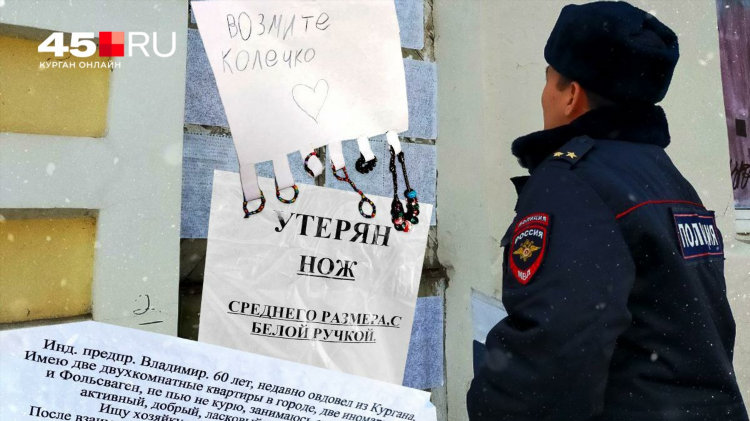 45.RU
КУРГАН ОНЛАЙН
ВОЗМИТЕ
КОЛЕЧКО
УТЕРЯН
НОЖ
СРЕДНЕГО РАЗМЕРА.С
БЕЛОЙ РУЧКОЙ.
ПОЛИЦИЯ
РОССИЯ
МВД
ПОЛИЦИЯ
2.
Инд. предпр. Владимир. 60 лет, недавно овдовел из Кургана.
Имею две двухкомнатные квартиры в городе, две иномарки
и Фольсваген, не пью не курю, занимаюсь
активный, добрый, ласковый
Ищу хозяйку
После